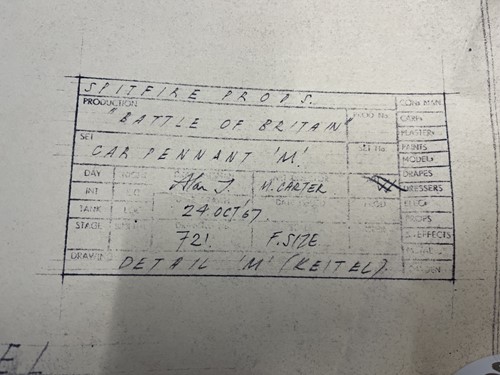 SPITFIRE PROPS.
PRODUCTION
"BATTLE OF BRITAIN"
PROD No
SET
CAR PENNANT 'M'.
SET No
DAY
INT
TANK
STAGE
M. CARTER
24 OCT '67
721
F. SIZE
DRAWING
DETAIL 'M' (KEITEL).
CONS MAN.
CARPS
PLASTERS
PAINTS
MODELS
DRAPES
DRESSERS
ELECS
PROPS
S. EFFECTS
EL